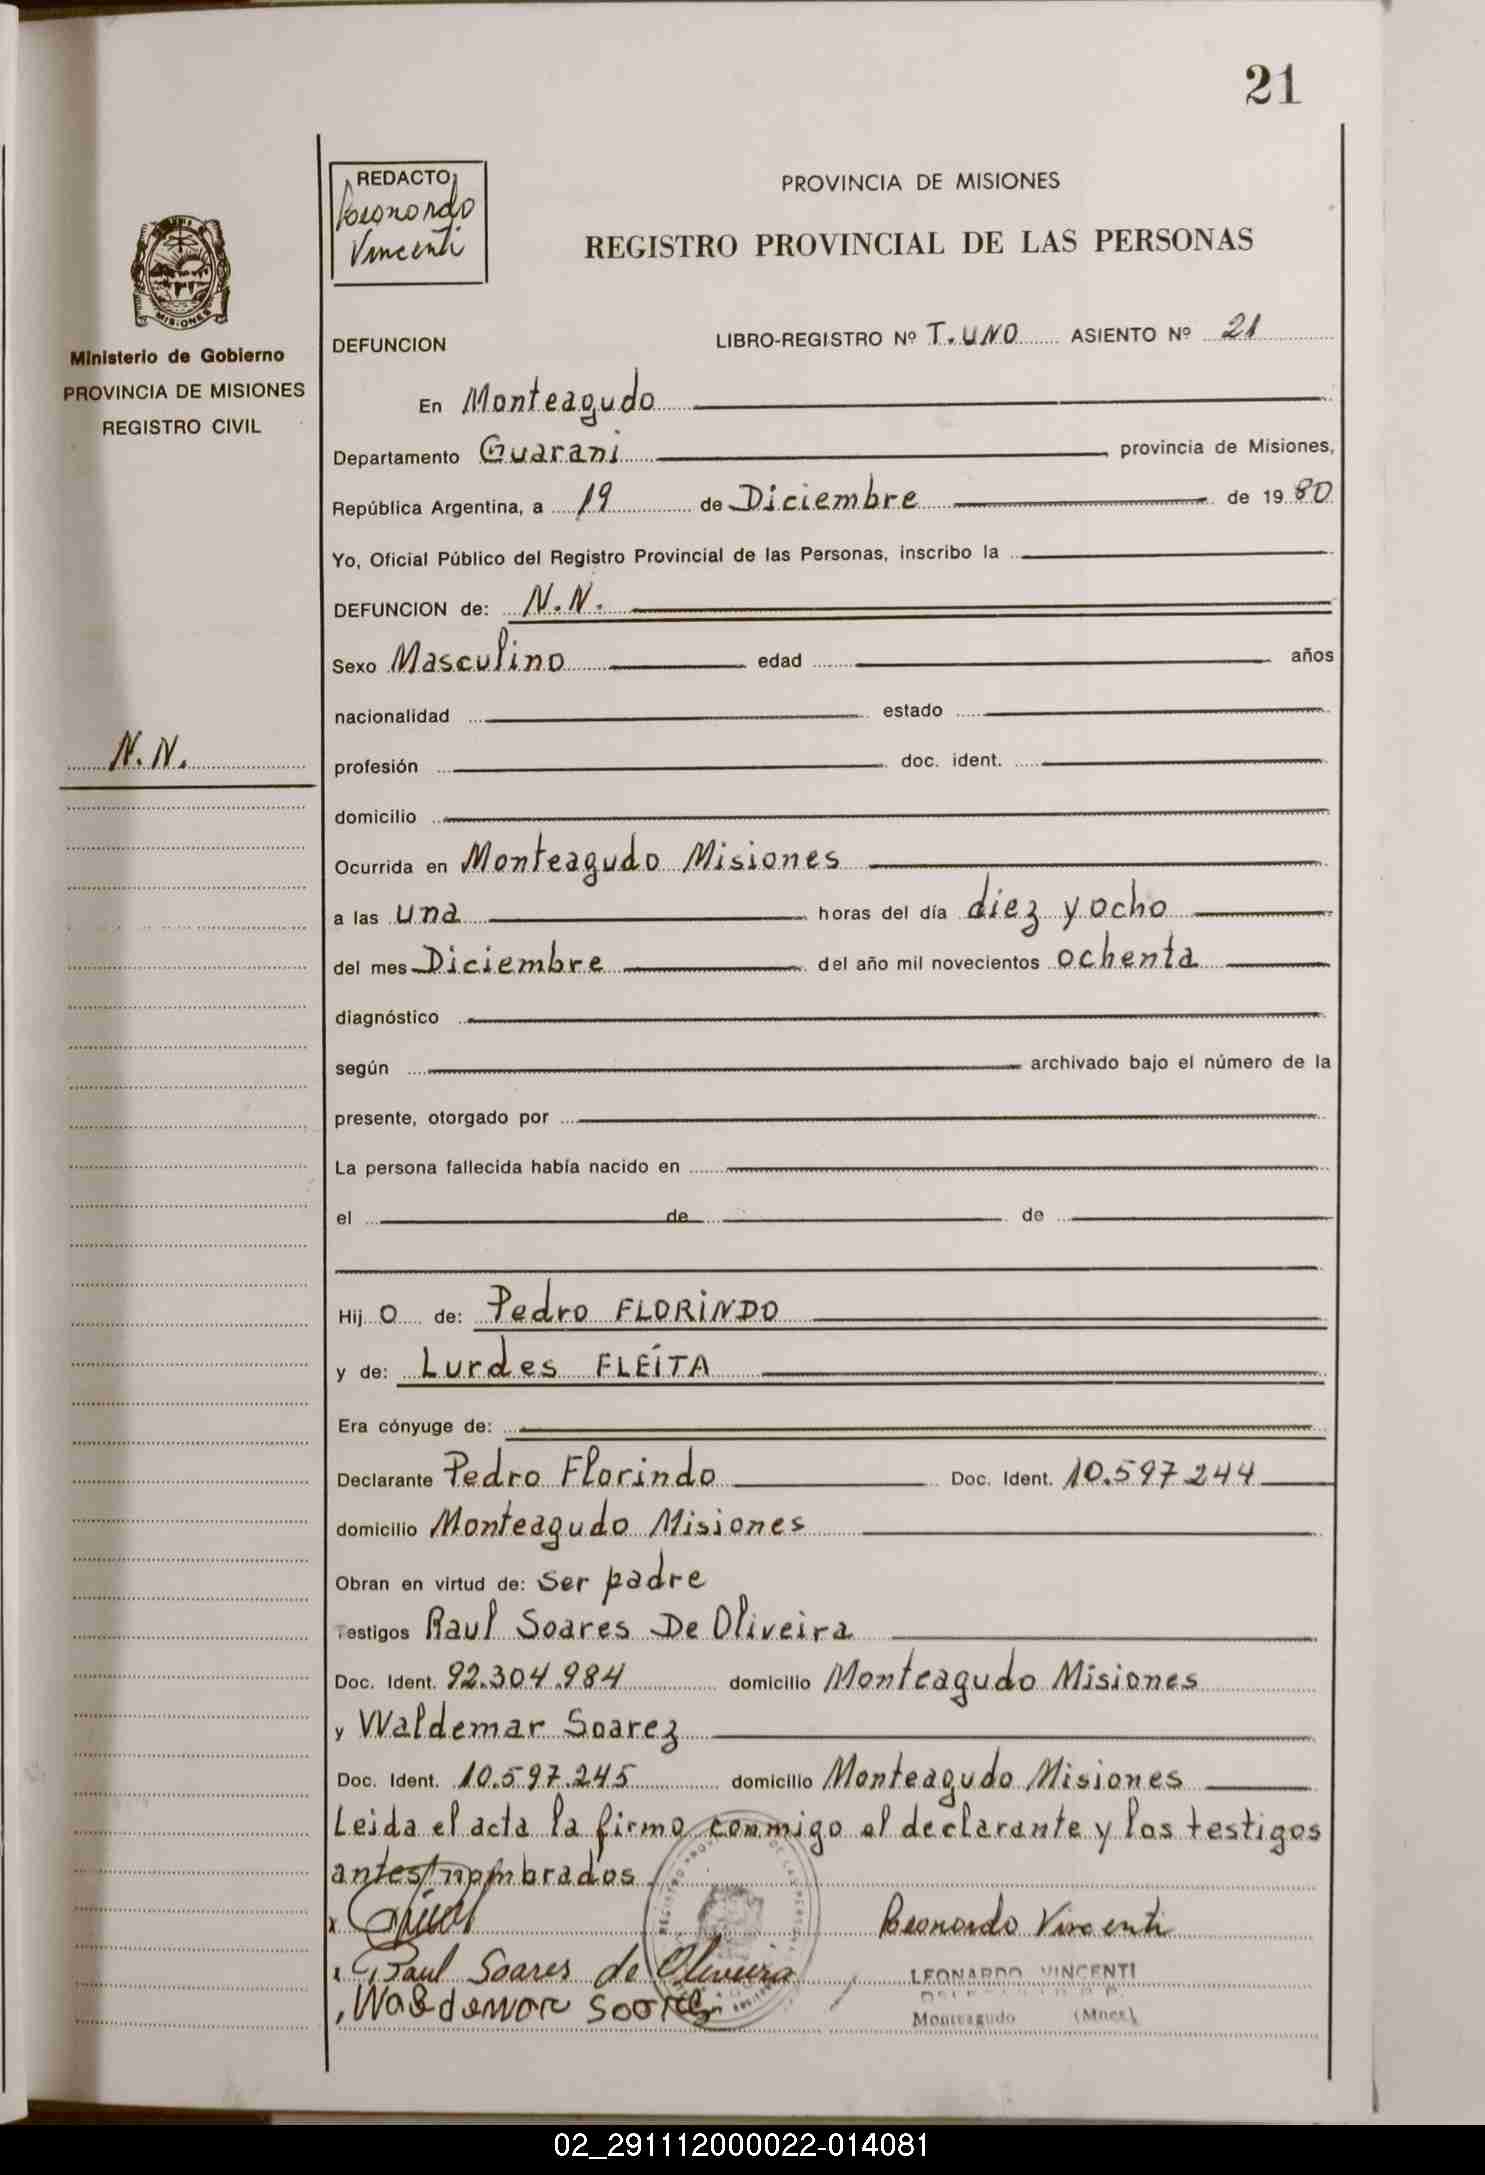 21
REDACTO
Leonardo
Vincenti
PROVINCIA DE MISIONES
REGISTRO PROVINCIAL DE LAS PERSONAS
MISIONES
Ministerio de Gobierno
PROVINCIA DE MISIONES
REGISTRO CIVIL
DEFUNCION LIBRO-REGISTRO Nº T. UNO ASIENTO Nº 21
En Monteagudo
Departamento Guarani provincia de Misiones,
República Argentina, a 19 de Diciembre de 19 80
Yo, Oficial Público del Registro Provincial de las Personas, inscribo la
DEFUNCION de: N.N.
Sexo Masculino edad años
nacionalidad estado
N.N.
profesión doc. ident.
domicilio
Ocurrida en Monteagudo Misiones
a las una horas del día diez y ocho
del mes Diciembre del año mil novecientos ochenta
diagnóstico
según archivado bajo el número de la
presente, otorgado por
La persona fallecida había nacido en
el de de
Hij o de: Pedro FLORINDO
y de: Lurdes FLEÍTA
Era cónyuge de:
Declarante Pedro Florindo Doc. Ident. 10.597.244
domicilio Monteagudo Misiones
Obran en virtud de: ser padre
Testigos Raul Soares De Oliveira
Doc. Ident. 92.304.984 domicilio Monteagudo Misiones
y Waldemar Soarez
Doc. Ident. 10.597.245 domicilio Monteagudo Misiones
Leida el acta la firmo conmigo el declarante y los testigos
antes nombrados.
Leonardo Vincenti
Raul Soares de Oliveira
LEONARDO VINCENTI
Waldemar Soares
Monteagudo (Mnes)
02_291112000022-014081